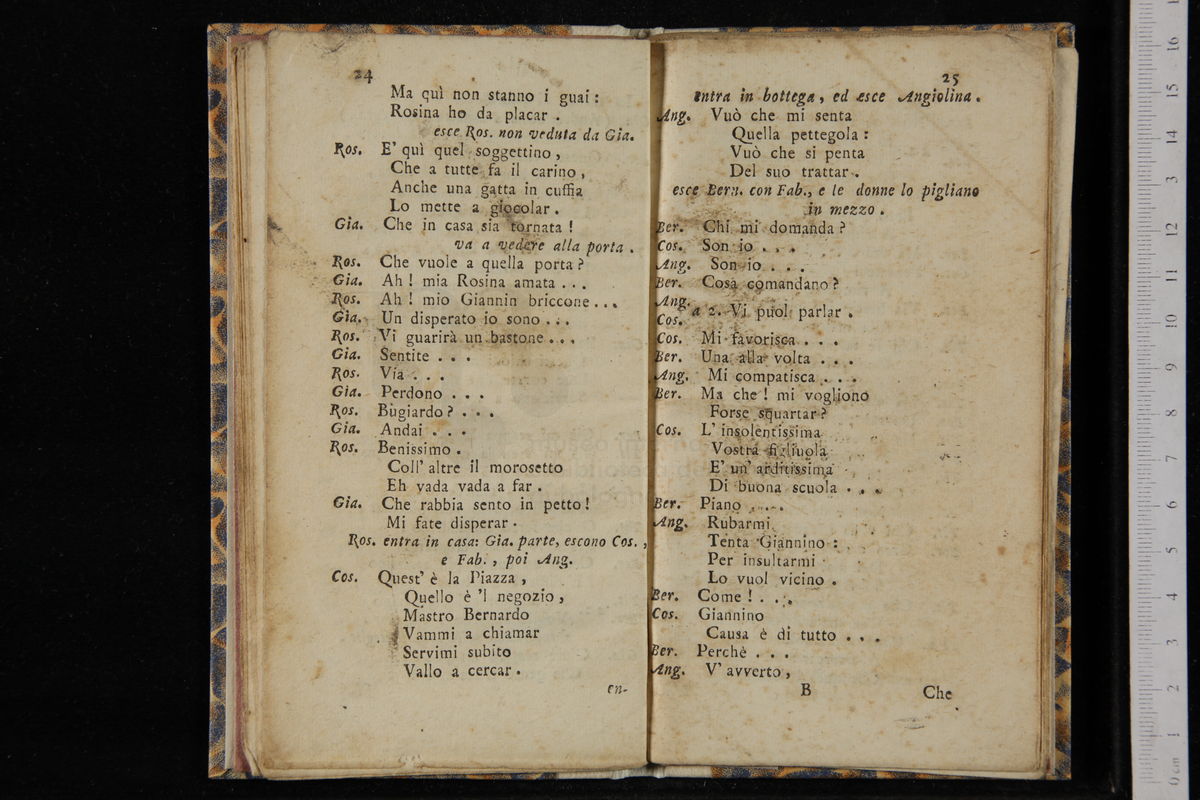 24
Ma quì non stanno i guai:
Rosina ho da placar.
esce Ros. non veduta da Gia.
Ros. E' quì quel soggettino,
Che a tutte fa il carino,
Anche una gatta in cuffia
Lo mette a giocolar.
Gia. Che in casa sia tornata!
va a vedere alla porta.
Ros. Che vuole a quella porta?
Gia. Ah! mia Rosina amata...
Ros. Ah! mio Giannin briccone...
Gia. Un disperato io sono...
Ros. Vi guarirà un bastone...
Gia. Sentite...
Ros. Via...
Gia. Perdono...
Ros. Bugiardo?...
Gia. Andai...
Ros. Benissimo.
Coll' altre il morosetto
Eh vada vada a far.
Gia. Che rabbia sento in petto!
Mi fate disperar.
Ros. entra in casa: Gia. parte, escono Cos.,
e Fab., poi Ang.
Cos. Quest' è la Piazza,
Quello è 'l negozio,
Mastro Bernardo
Vammi a chiamar
Servimi subito
Vallo a cercar.
en-
25
entra in bottega, ed esce Angiolina.
Ang. Vuò che mi senta
Quella pettegola:
Vuò che si penta
Del suo trattar.
esce Bern. con Fab., e le donne lo pigliano
in mezzo.
Ber. Chi mi domanda?
Cos. Son io...
Ang. Son io...
Ber. Cosa comandano?
Ang.
Cos. a 2. Vi puol parlar.
Cos. Mi favorisca...
Ber. Una alla volta...
Ang. Mi compatisca...
Ber. Ma che! mi vogliono
Forse squartar?
Cos. L' insolentissima
Vostra figliuola
E' un' arditissima
Di buona scuola...
Ber. Piano....
Ang. Rubarmi
Tenta Giannino:
Per insultarmi
Lo vuol vicino.
Ber. Come!...
Cos. Giannino
Causa è di tutto...
Ber. Perchè...
Ang. V' avverto,
B
Che
0 cm 1 2 3 4 5 6 7 8 9 10 11 12 13 14 15 16